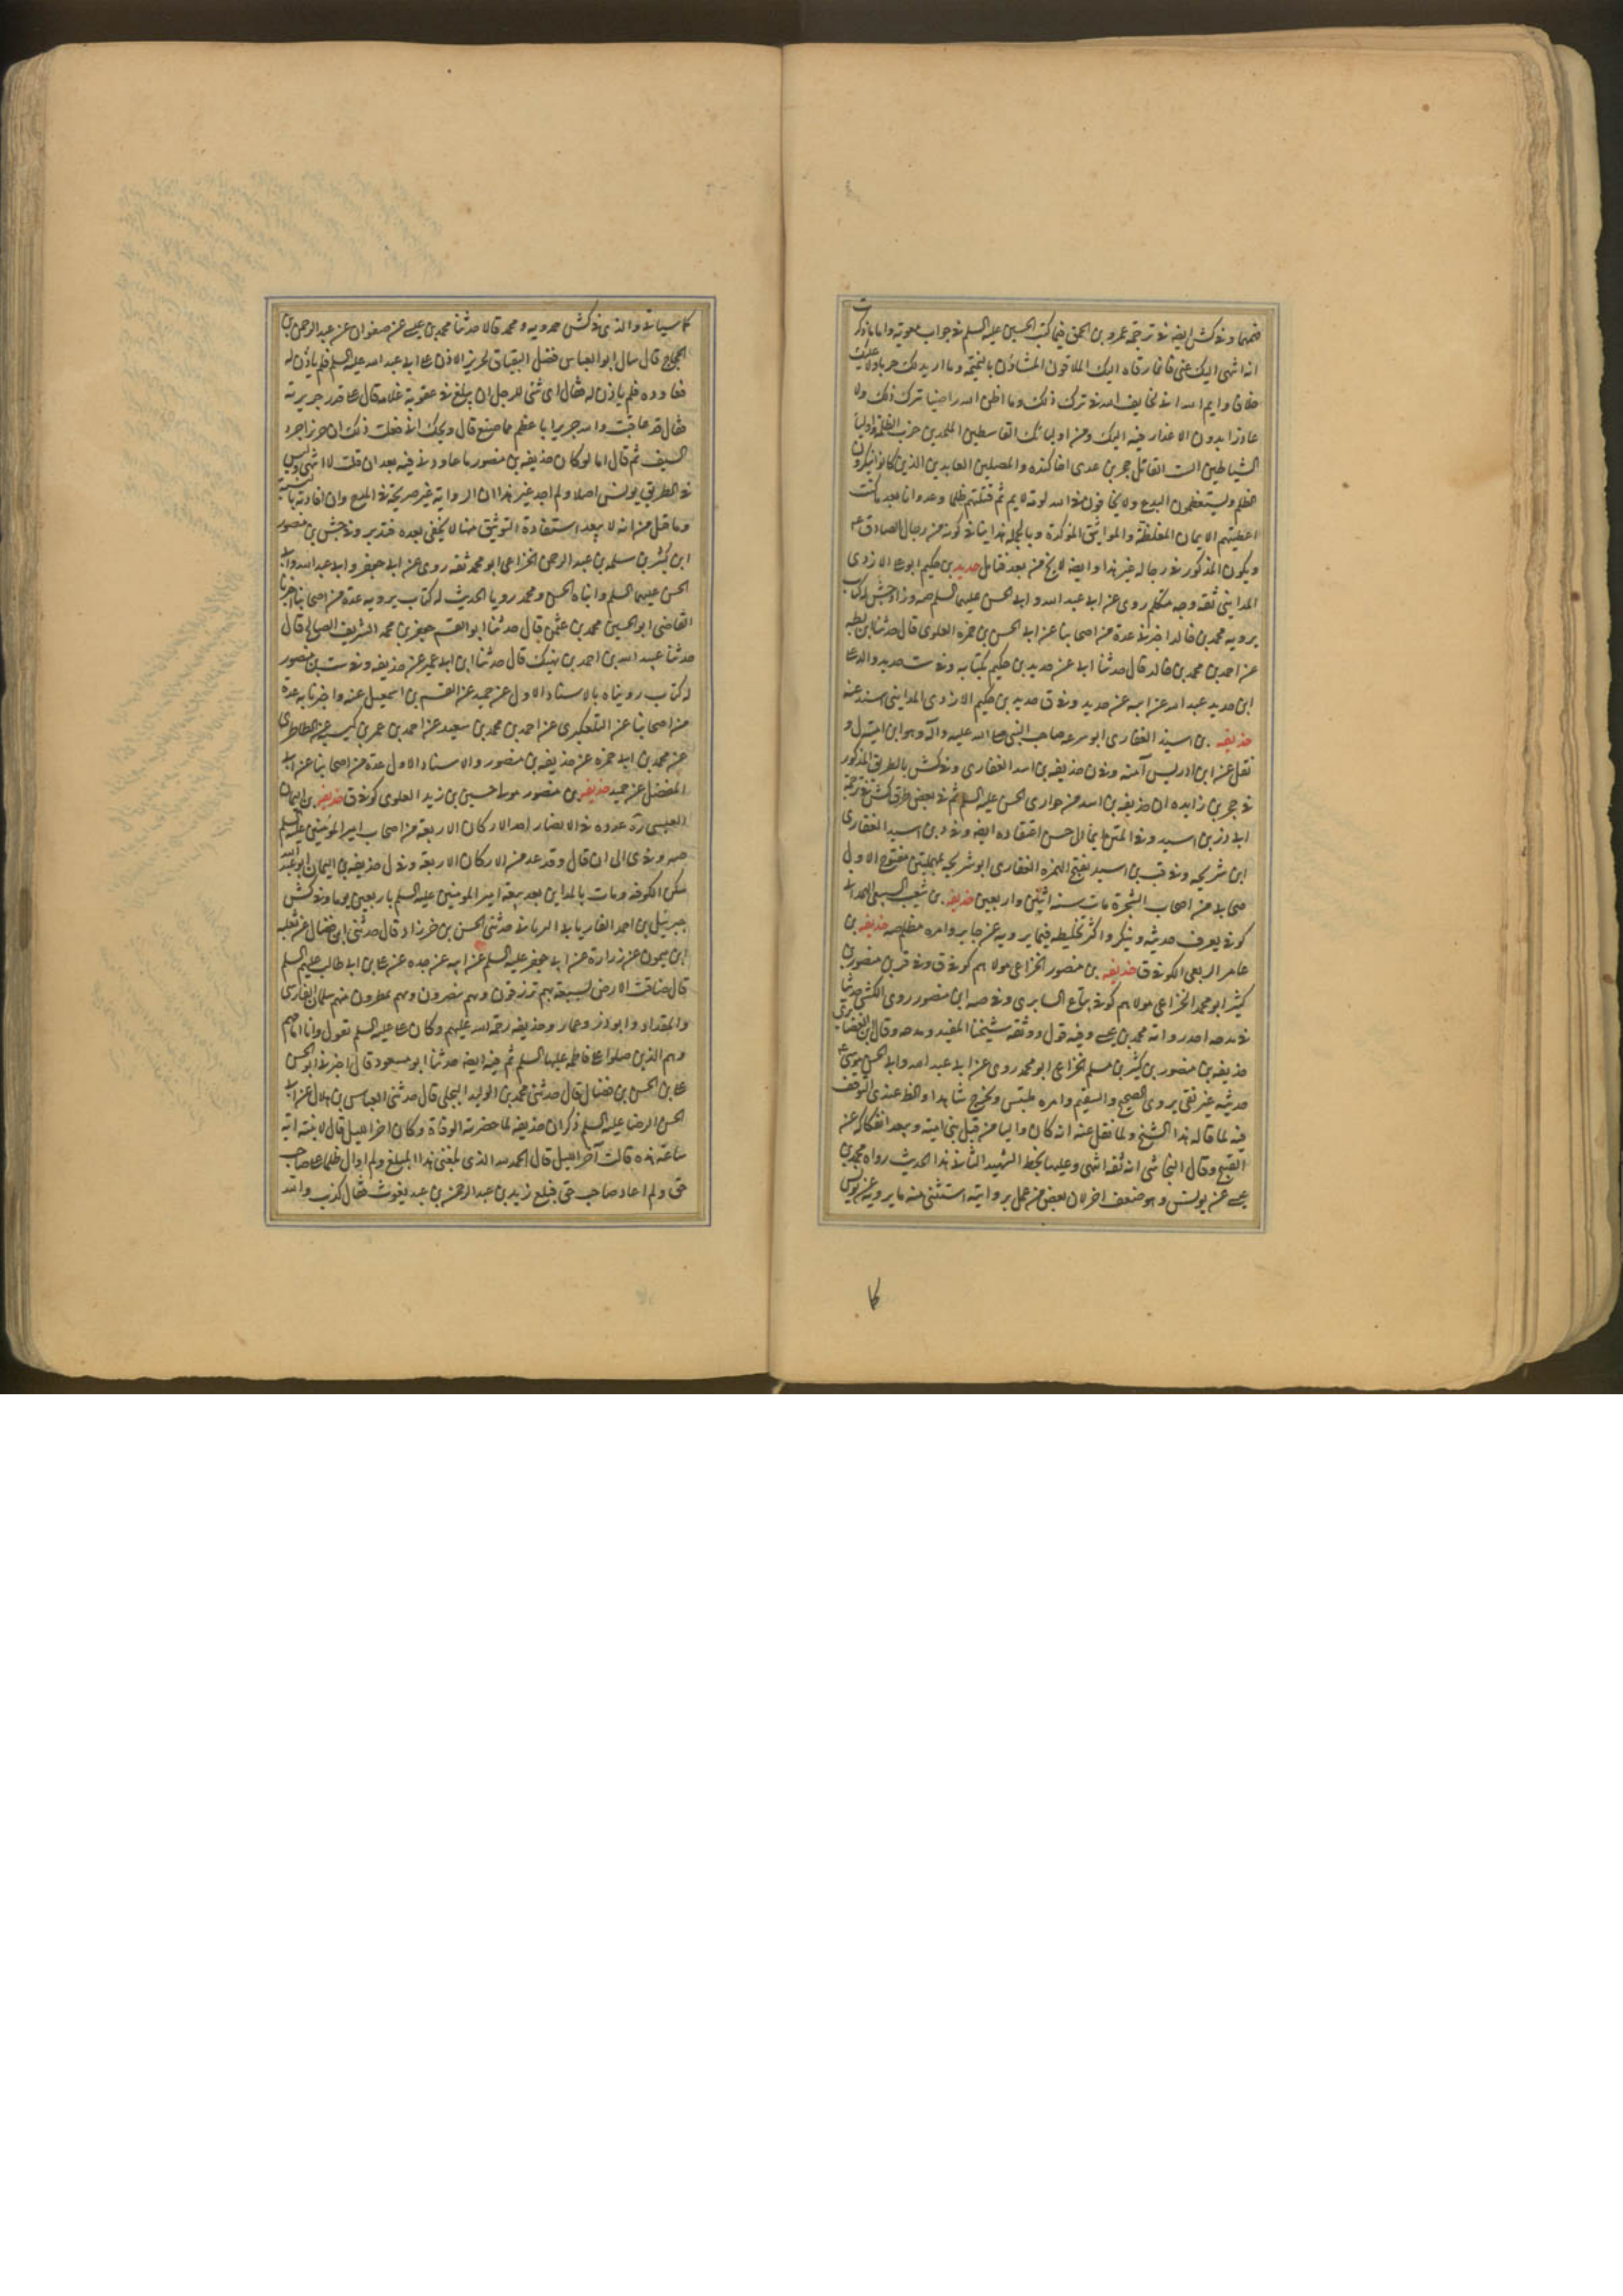 فتمهما وفي كش ايضه في ترجمة عمرو بن الحمق فيما كتب الحسين عليه السلم في جواب معوية واما ما ذكرت
انه انتهى اليك عنى فانما رقاه اليك الملاقون المشاؤن بالنميمة وما اريد لك حربا ولا عليك
خلافا وايم الله انى لخايف الله في ترك ذلك وما اظن الله راضيا بترك ذلك ولا
عاذرا بدون الاعذار فيه اليك وفي اوليائك القاسطين الملحدين حزب الظلمة واولياء
الشياطين الست القاتل حجر بن عدى اخا كنده والمصلين العابدين الذين كانوا ينكرون
الظلم ويستعظمون البدع ولا يخافون في الله لومة لايم ثم قتلتهم ظلما وعدوانا بعد ما كنت
اعطيتهم الايمان المغلظة والمواثيق المؤكدة وبالجمله هذا ينافي كونه من رجال الصادق ع
ويكون المذكور في رجاله غير هذا وايضه لا يخ من بعد فتامل حديد بن حكيم ابو على الازدى
المدايني ثقة وجه متكلم روى عن ابى عبد الله وابى الحسن عليهما السلم صه وزاد جش له كتاب
يرويه محمد بن خالد اخبرنا عدة من اصحابنا عن ابى الحسن بن حمزه العلوى قال حدثنا ابن بطه
عن احمد بن محمد بن خالد قال حدثنا ابى عن حديد بن حكيم بكتابه وفي ست حديد والد على
ابن حديد عبد الله عن ابيه عن حديد وفي ق حديد بن حكيم الازدى المدايني اسند عنه
حذيفه بن اسيد الغفارى ابو سرعه صاحب النبي صلى الله عليه وآله وهو ابن اميه ل و
نقل عن ابن ادريس آمنة وفي ن حذيفه بن اسد الغفارى وفي كش بالطريق المذكور
في حجر بن زايده ان حذيفه بن اسد من حوارى الحسن عليه السلم ثم في بعض طرق كش في ترجمة
ابى ذر بن اسيد وفي المتن ما ينافي حسن اعتقاده ايضه وفي د بن اسيد الغفارى
ابن شريحه وفي قب بن اسيد بفتح الهمزه الغفارى ابو شريحه بمهملتين مفتوح الاول
صحابى من اصحاب الشجرة مات سنه اثنين واربعين حذيفه بن شعيب السبيعى الهمدانى
كوفى يعرف حديثه وينكر واكثر تخليطه فيما يرويه عن جابر وامره مظلم صه حذيفه بن
عامر الربعى الكوفى ق حذيفه بن منصور الخزاعى مولاهم كوفى ق وفي قر بن منصور بن
كثير ابو محمد الخزاعى مولاهم كوفى بياع السابرى وفي صه ابن منصور روى الكشى حديثا
في مدحه احد رواته محمد بن عيسى وفيه قول ووثقه شيخنا المفيد ومدحه وقال ابن الغضايرى
حذيفه بن منصور بن كثير بن سلم الخزاعى ابو محمد روى عن ابى عبد الله وابى الحسن موسى ع
حديثه غير نقى يروى الصحيح والسقيم وامره ملتبس ويخرج شاهدا والظ عندى التوقف
فيه لما قاله هذا الشيخ ولما نقل عنه انه كان واليا من قبل بنى اميه ويبعد انفكاكه عن
القبيح وقال النجاشى انه ثقه انتهى وعليها بخط الشهيد الثانى هذا الحديث رواه محمد بن
عيسى عن يونس وهو ضعيف اخر لان بعض من عمل بروايته استثنى منه ما يرويه عن يونس
كا
كما سياتى والذى في كش حمدويه ومحمد قالا حدثنا محمد بن عيسى عن صفوان عن عبد الرحمن بن
الحجاج قال سال ابو العباس فضل البقباق لحريز الاذن على ابى عبد الله عليه السلم فلم ياذن له
فعاوده فلم ياذن له فقال اى شئ للرجل ان يبلغ في عقوبة غلامه قال على قدر جريرته
فقال قد عاقبت والله حريزا باعظم مما صنع قال ويحك انى فعلت ذلك ان حريزا جرد
السيف ثم قال اما لو كان حذيفه بن منصور ما عاودنى فيه بعد ان قلت لا انتهى وليس
في الطريق يونس اصلا ولم اجد غير هذا ان الرواية غير صريحة في المدح وان افادته
وما قيل من انه لا يبعد استفادة التوثيق منها لا يخفى بعده فتدبر وفي جش بن منصور
ابن كثير بن سلمه بن عبد الرحمن الخزاعى ابو محمد ثقه روى عن ابى جعفر وابى عبد الله وابى
الحسن عليهم السلم وابناه الحسن ومحمد رويا الحديث له كتاب يرويه عدة من اصحابنا اخبرنا
القاضى ابو الحسين محمد بن عثمن قال حدثنا ابو القسم جعفر بن محمد الشريف الصالح قال
حدثنا عبيد الله بن احمد بن نهيك قال حدثنا ابن ابى عمير عن حذيفه وفي ست بن منصور
له كتاب رويناه بالاسناد الاول عن حميد عن القسم بن اسمعيل عنه واخبرنا به عدة
من اصحابنا عن التلعكبرى عن احمد بن محمد بن سعيد عن احمد بن عمر بن كيسبه عن الطاطرى
عن محمد بن ابى حمزه عن حذيفه بن منصور والاسناد الاول عدة من اصحابنا عن ابى
المفضل عن حميد حذيفه بن منصور مولى حسين بن زيد العلوى كوفى ق حذيفه بن اليمان
العبسى ره عداده في الانصار احد الاركان الاربعة من اصحاب امير المؤمنين عليه السلم
صه وفي ى الى ان قال وقد عد من الاركان الاربعة وفي ل حذيفه بن اليمان ابو عبد الله
سكن الكوفه ومات بالمداين بعد بيعة امير المومنين عليه السلم باربعين يوما وفي كش
جبرئيل بن احمد الفاريابى البرنانى حدثنى الحسن بن خرزاد قال حدثنى ابن فضال عن ثعلبه
ابن ميمون عن زرارة عن ابى جعفر عليه السلم عن ابيه عن جده عن على بن ابى طالب عليهم السلم
قال ضاقت الارض بسبعة بهم ترزقون وبهم تنصرون وبهم تمطرون منهم سلمان الفارسى
والمقداد وابو ذر وعمار وحذيفه رحمة الله عليهم وكان على عليه السلم يقول وانا امامهم
وهم الذين صلوا على فاطمه عليها السلم ثم فيه ايضه حدثنا ابو مسعود قال اخبرنى ابو الحسن
على بن الحسن بن فضال قال حدثنى محمد بن الوليد البجلى قال حدثنى العباس بن هلال عن ابى
الحسن الرضا عليه السلم ذكر ان حذيفه لما حضرته الوفاة وكان اخر الليل قال لابنته اية
ساعة هذه قالت آخر الليل قال الحمد لله الذى بلغنى هذا المبلغ ولم اوال ظالما على صاحب
حق ولم اعاد صاحب حق فبلغ زيد بن عبد الرحمن بن عبد يغوث فقال كذب والله